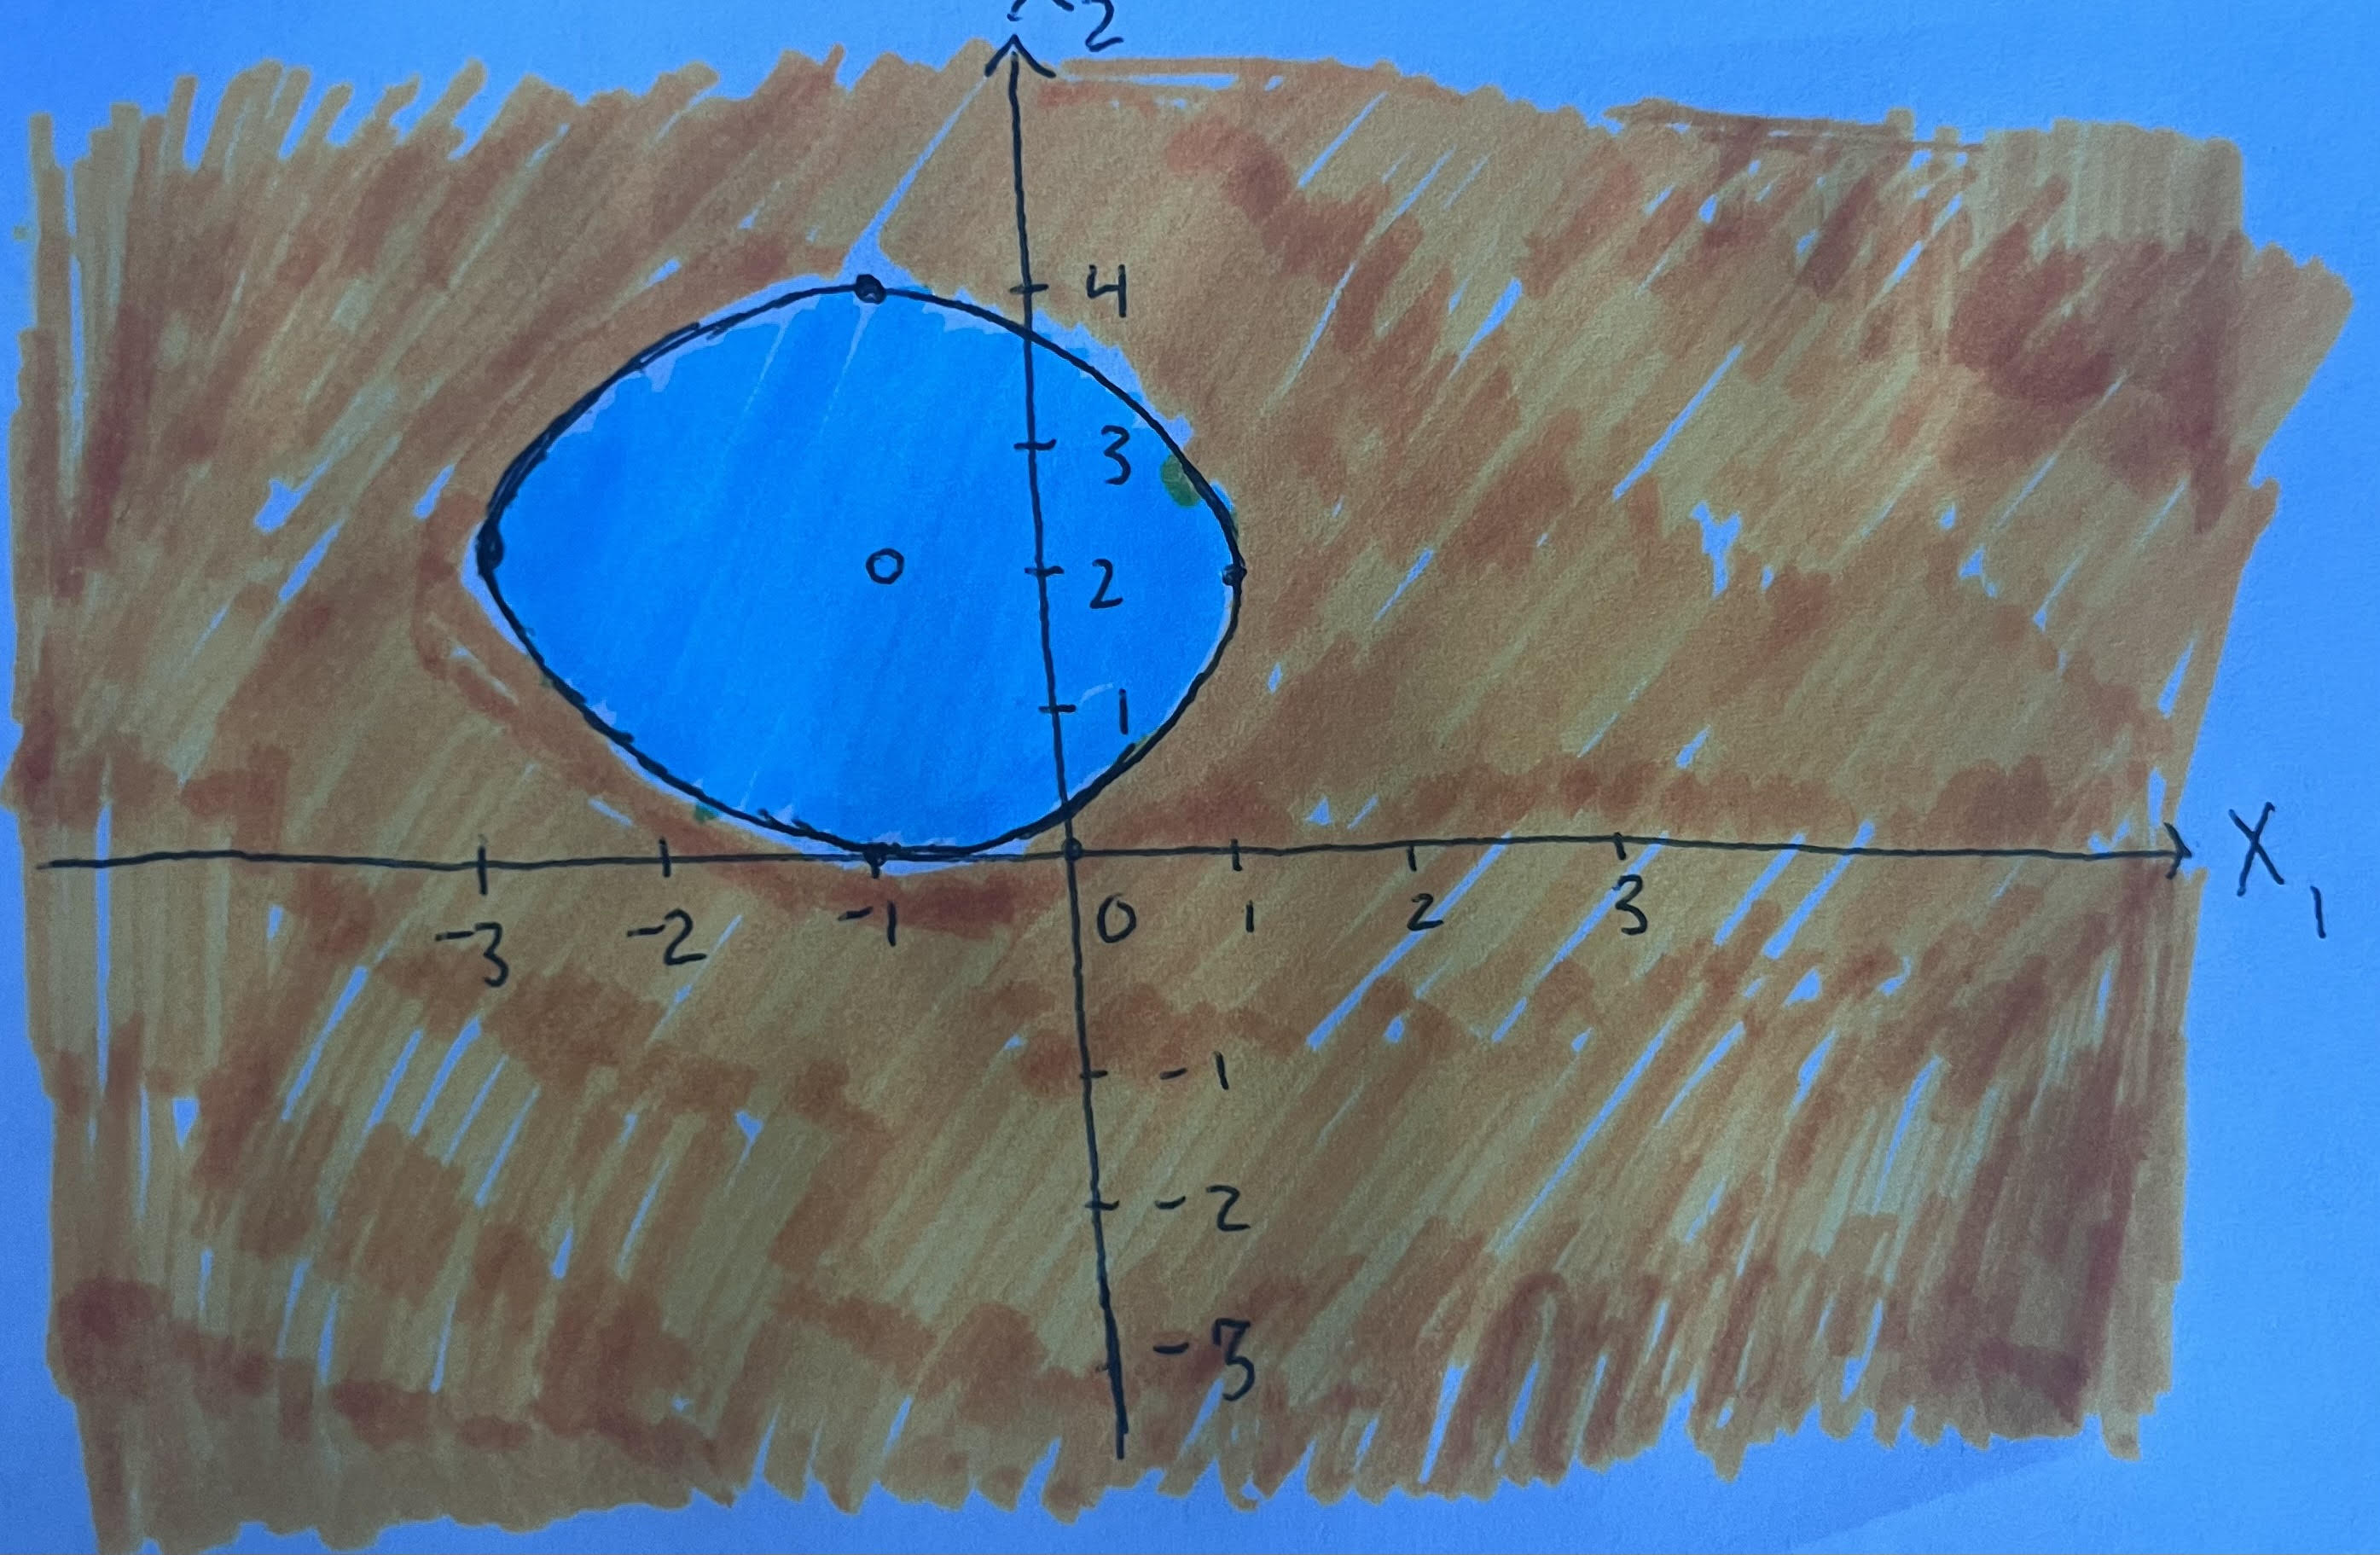 2
4
3
2
1
X₁
-3 -2 -1 0 1 2 3
-1
-2
-3